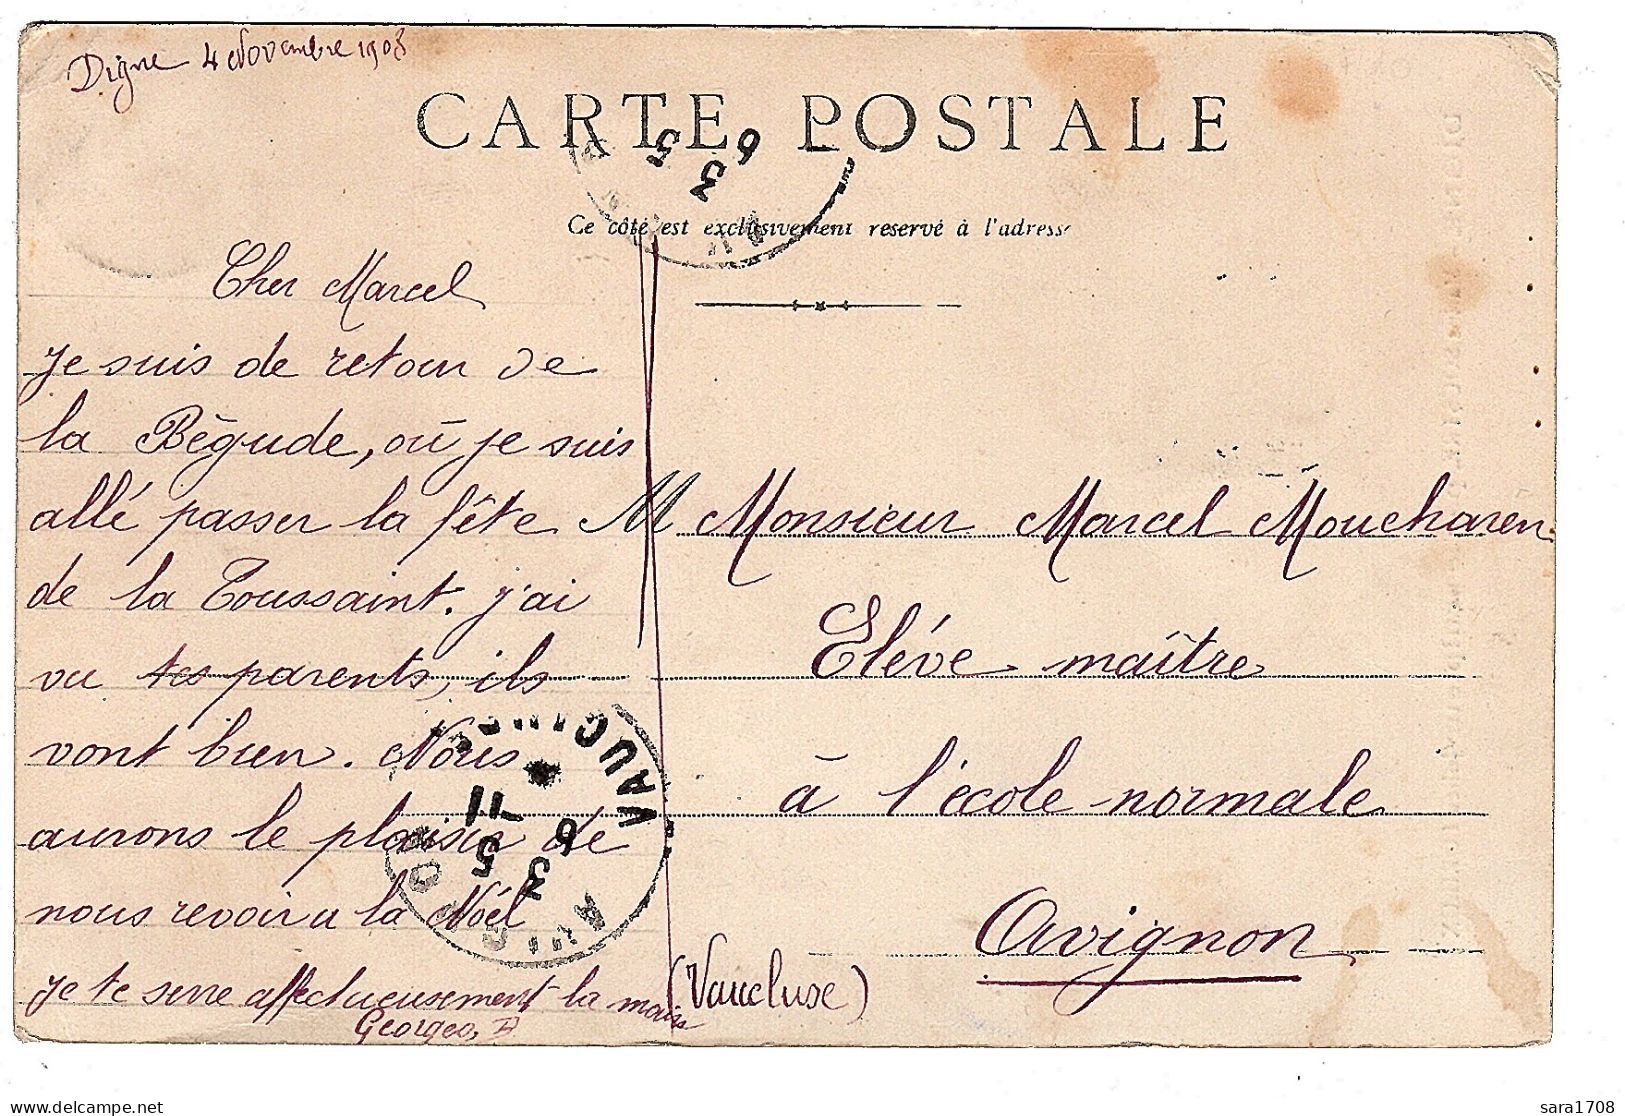 Digne 4 Novembre 1903
CARTE POSTALE
Ce côté est exclusivement reservé à l'adresse
Cher Marcel
Je suis de retour de
la Bégude, où je suis
allé passer la fête
de la Toussaint. J'ai
vu tes parents, ils
vont bien. Nous
aurons le plaisir de
nous revoir a la Noël
Je te serre affectueusement la main
Georges
M Monsieur Marcel Moucharen
Elève maître
à l'école normale
Avignon
(Vaucluse)
5 3
6
AVIGNON
VAUCLUSE
6
5 3
11
delcampe.net
sara1708